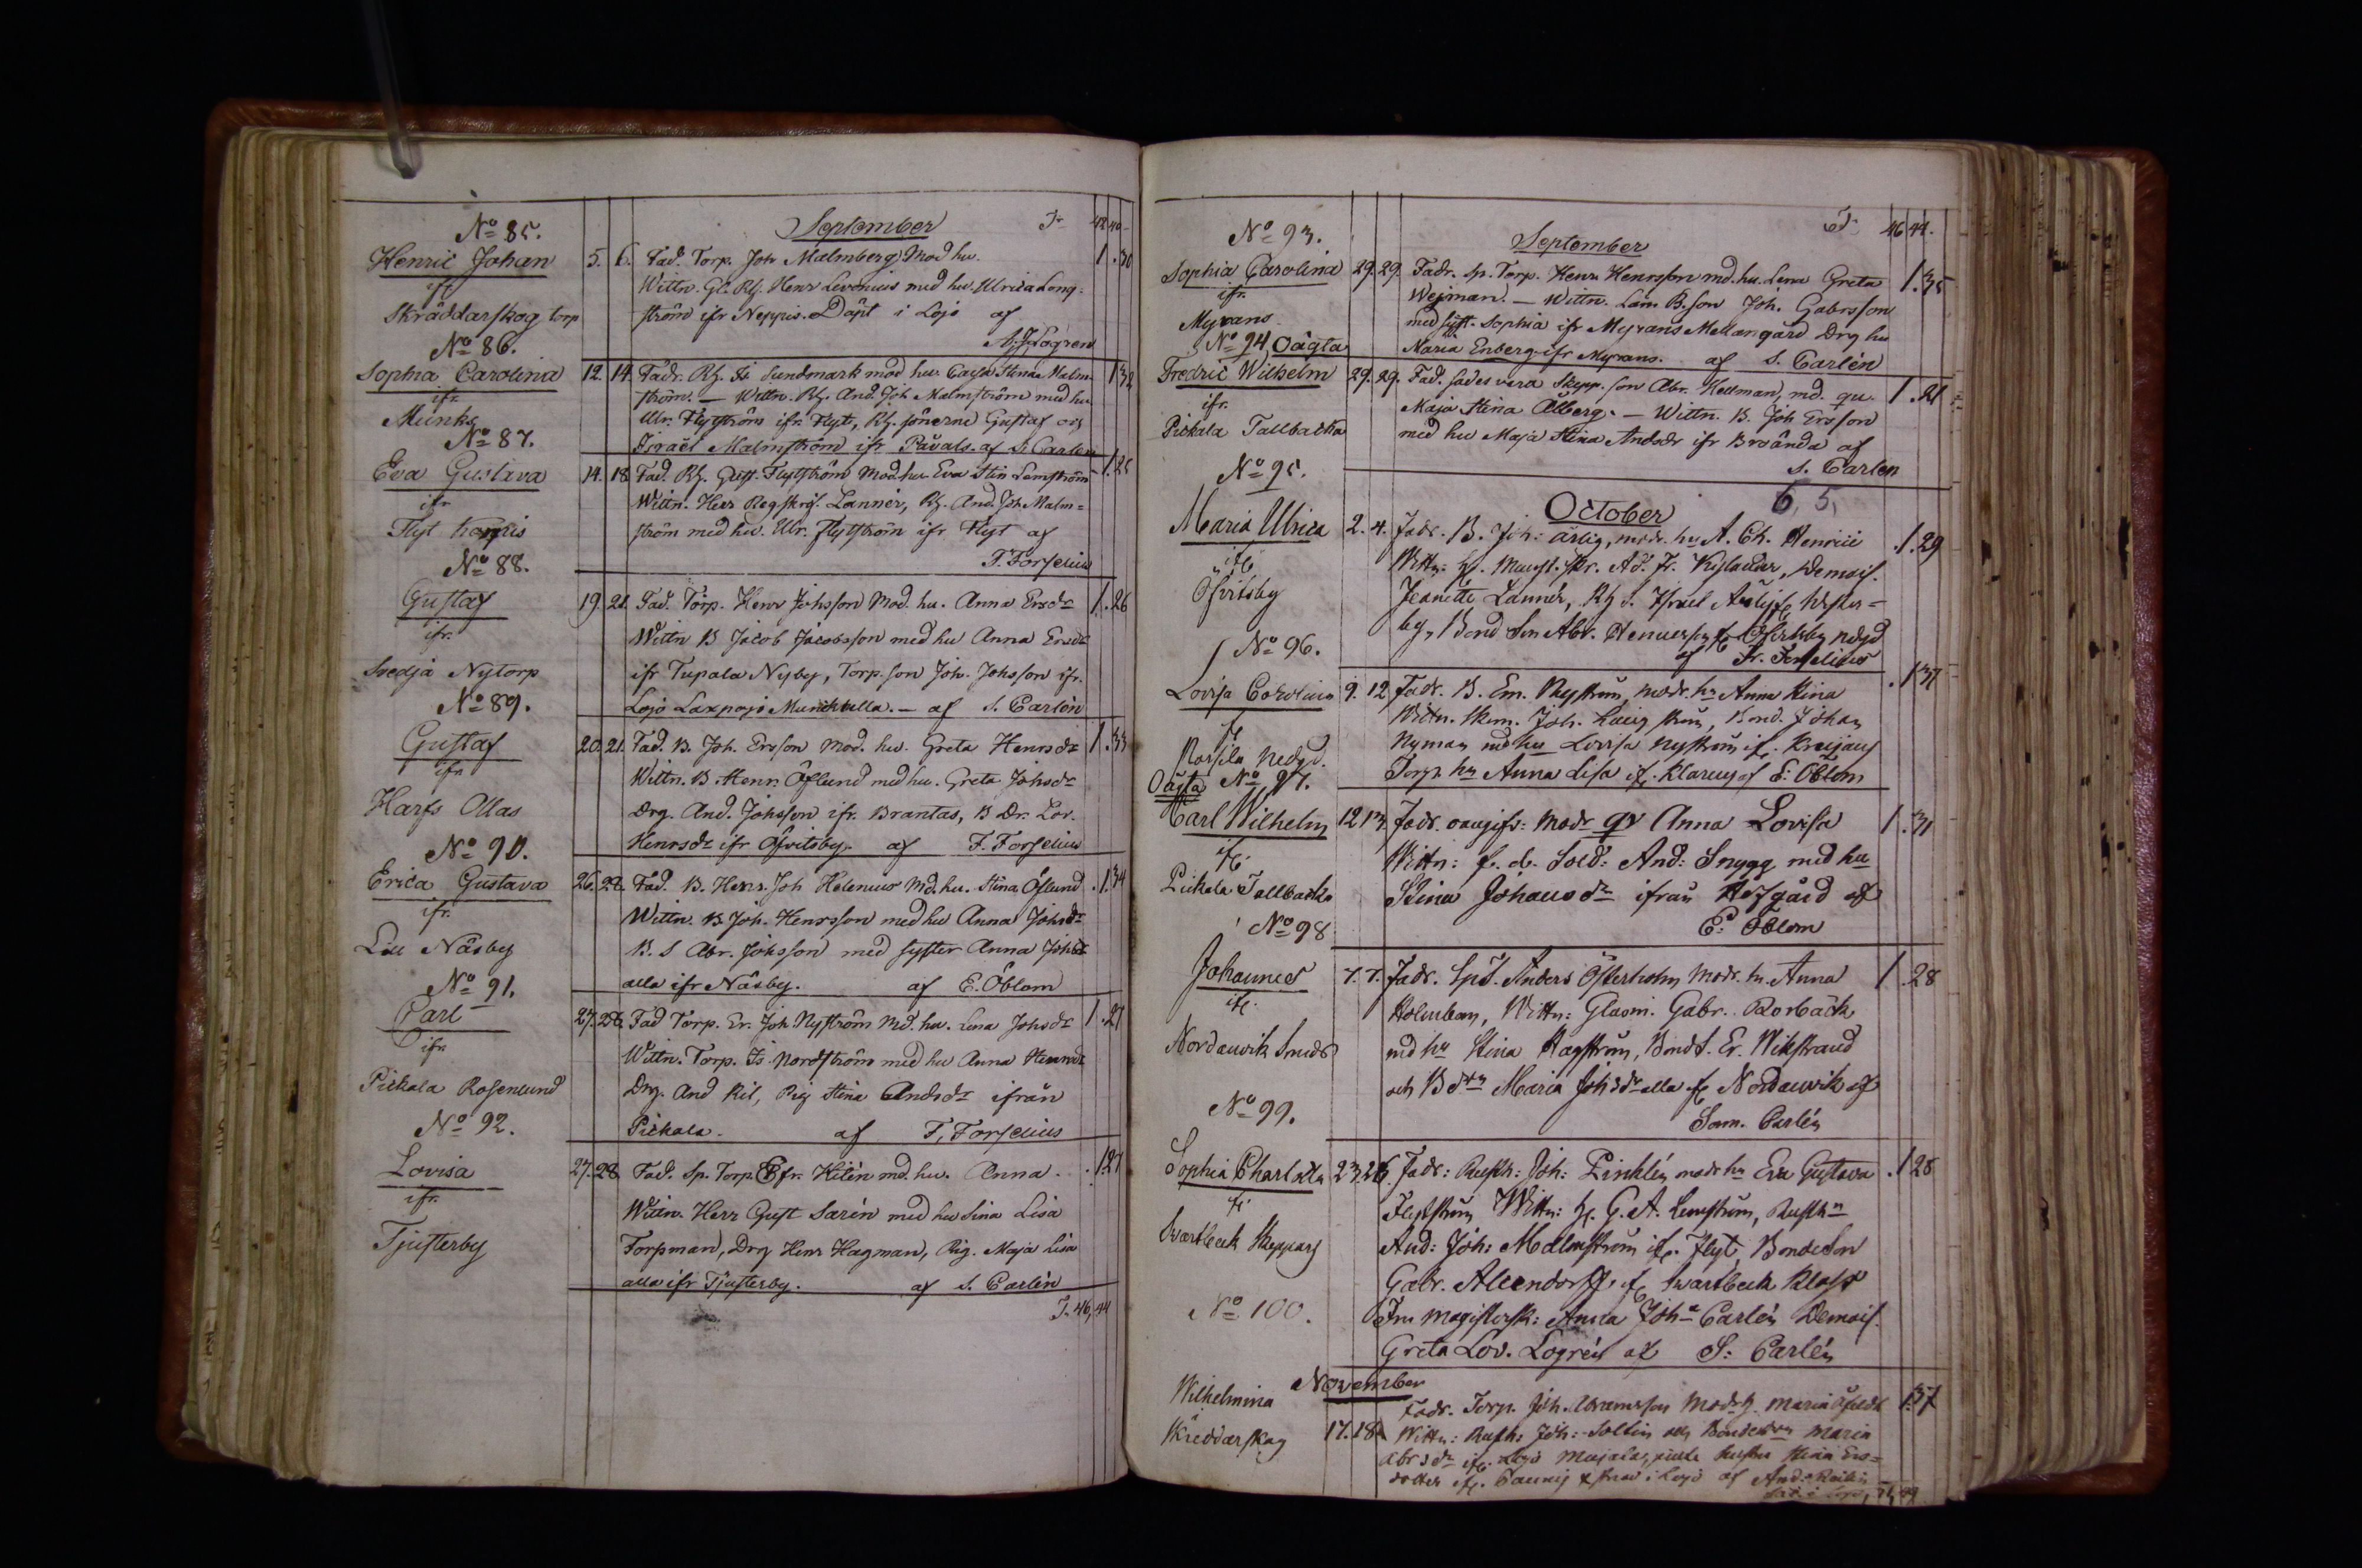 No 85.
September
Tr 42 40
Henric Johan 5. 6. Fad. Torp. Joh Malmberg Mod hu. 1 .30
ifr
Wittn. Gl. Rh. Henr Levonius med hu. Ulrica Long-
Skräddarskog torp
ström ifr Neppis. Döpt i Lojo af
A. J. Logren
No 86.
Sophia Carolina 12. 14. Fadr. Rh. Is Sundmark mod hu Cajsa Stina Malm 1 32
ifr.
ström. — Wittn. Rh. And. Joh Malmström med hu
Munks
Ulr. Flytström ifr Flyt, Rh. sönerne Gustaf och
No 87.
Israel Malmström ifr Påvals. af S. Carlen
Eva Gustava 14. 18 Fad. Rh. Gust. Flytström Mod. hu Eva Stin Lemström 1.25
ifr
Wittn. Herr Regskrif. Lannér, Rh. And. Joh Malm=
Flyt
ström med hu. Ulr. Flytström ifr Flyt af
F. Forselius
No 88.
Gustaf 19. 21. Fad. Torp. Henr Johsson Mod. hu. Anna Ersdr 1.26
ifr.
Wittn B Jacob Jacobsson med hu Anna Ersdr
Svedja Nytorp
ifr Tupala Nyby, Torp. son Joh. Johsson ifr.
No 89.
Lojo Laxpojo — af S. Carlén
Gustaf 20. 21. Fad. B. Joh. Ersson Mod. hu. Greta Henrsdr 1.33
ifr
Wittn. B. Henr. Öflund med hu. Greta Johsdr
Harfs Ollas
Drg. And. Johsson ifr. Brantas, B Dr. Lov.
Henrsdr ifr Öfvitsby. af F. Forselius
No 90.
Erica Gustava 26. 28. Fad. B. Henr. Joh Helenius Md. hu. Stina Öflund .1.34
ifr.
Wittn. B Joh. Henrsson med hu Anna Johsdr
Lill Näsby
B. S Abr. Johsson med syster Anna Johsdr
No 91.
alla ifr Näsby. af E. Öblom
Carl 27. 28. Fad Torp. Er. Joh Nyström Md. hu. Lena Johsdr 1.27
ifr.
Wittn. Torp. Is Nordström med hu Anna Henrsdr
Pickala Rosenlund
Drg. And Ril, Pig Stina Andsdr ifrån
No 92.
Pickala. af F. Forselius
Lovisa 27. 28. Fad. Sp. Torp. Efr. Hilén md. hu. Anna .1.27
ifr.
Wittn. Herr Gust Sarin med hu Lisa
Tjusterby
Forsman, Drg Henr Hagman, Pig. Maja Lisa
alla ifr Tjusterby. af S. Carlén
T. 46, 44
No 93.
September
Tr 46 44.
Sophia Carolina 29. 29. Fadr. Sp. Torp. Henr. Henrsson md. hu. Lena Greta 1.35
ifr
Wejman. — Wittn. Län. B. son Joh. Gabrsson
Myrans
med syst. Sophia ifr Myrans Mellangård Drg hu
No 94 Oägta
Maria Enberg ifr Myrans. af S. Carlén
Fredric Wilhelm 29. 29. Fad. sades vara Skepp. son Abr. Hellman, md. qv. 1.21
ifr.
Maja Stina Ålberg. — Wittn. B. Joh Ersson
Pickala Tallbacka
med hu Maja Stina Andsdr ifr Broända af
S. Carlen
No 95.
October
6, 5,
Maria Ulrica 2. 4. Fadr. B. Joh: Ärlig, modr. hu A. Ch. Henricii .1.29
ifr
Wittn: Ad. Fr. Kyladur, Demois.
Öfvitsby
Jeanette Lannér, Rh S. Israel
by, Bond Son Abr. Henrsson fr Öfvitsby nedgd
af Fr. Forselius
No 96.
Lovisa Carolina 9. 12 Fadr. B. Em. Nyström, modr. hu Anna Stina .1 37
fr
Wittn. Skom. Joh. Ström, Bond. Johan
Rossila nedgd.
Nyman md hu Lovisa Nyström ifr.
Torp. hu Anna Lisa ifr. Klarens af E: Öblom
Oägta No 97.
Carl Wilhelm 12 13 Fadr. oangifv: Modr qv Anna Lovisa 1.31
ifr.
Wittn: f. d. Sold: And: Snygg med hu
Pickala Tallbacka
Stina Johansdr ifrån Hofgård af
E: Öblom
No 98
Johannes 7. 7. Fadr. SpT. Anders Österholm Modr. hu Anna 1 .28
ifr.
Holmberg, Wittn: Glasm. Gabr. Rorback
Nordanvik Smeds
md hu Stina Hagström, Bond S. Er. Wikstrand
och B dtr Maria Johsdr alla fr Nordanvik af
Sam. Carlén
No 99.
Sophia Charlotta 23. 26. Fadr: Rusth: Joh: Zinklén modr hu Eva Gustava .1 28
fr
Flytström Wittn: H. G. A. Lemström, Rusthn
Svartbeck Skeppars
And: Joh: Malmström ifr. Flyt, Bondeson
Gabr. Allendorff fr Svartbeck Klass
No 100.
Fru Magistersk: Anna Joha Carlén Demois.
Greta Lov. Logrén af S: Carlén
November
Wilhelmina Fadr. Torp. Joh. Abramsson Modr h. Maria 1.37
Skreddarskog 17. 18 Wittn: Rusth: Joh: Soltin och Bondedtrn Maria
Abrsdr ifr. Lojo Stina Ers=
dotter ifr. i Lojo af